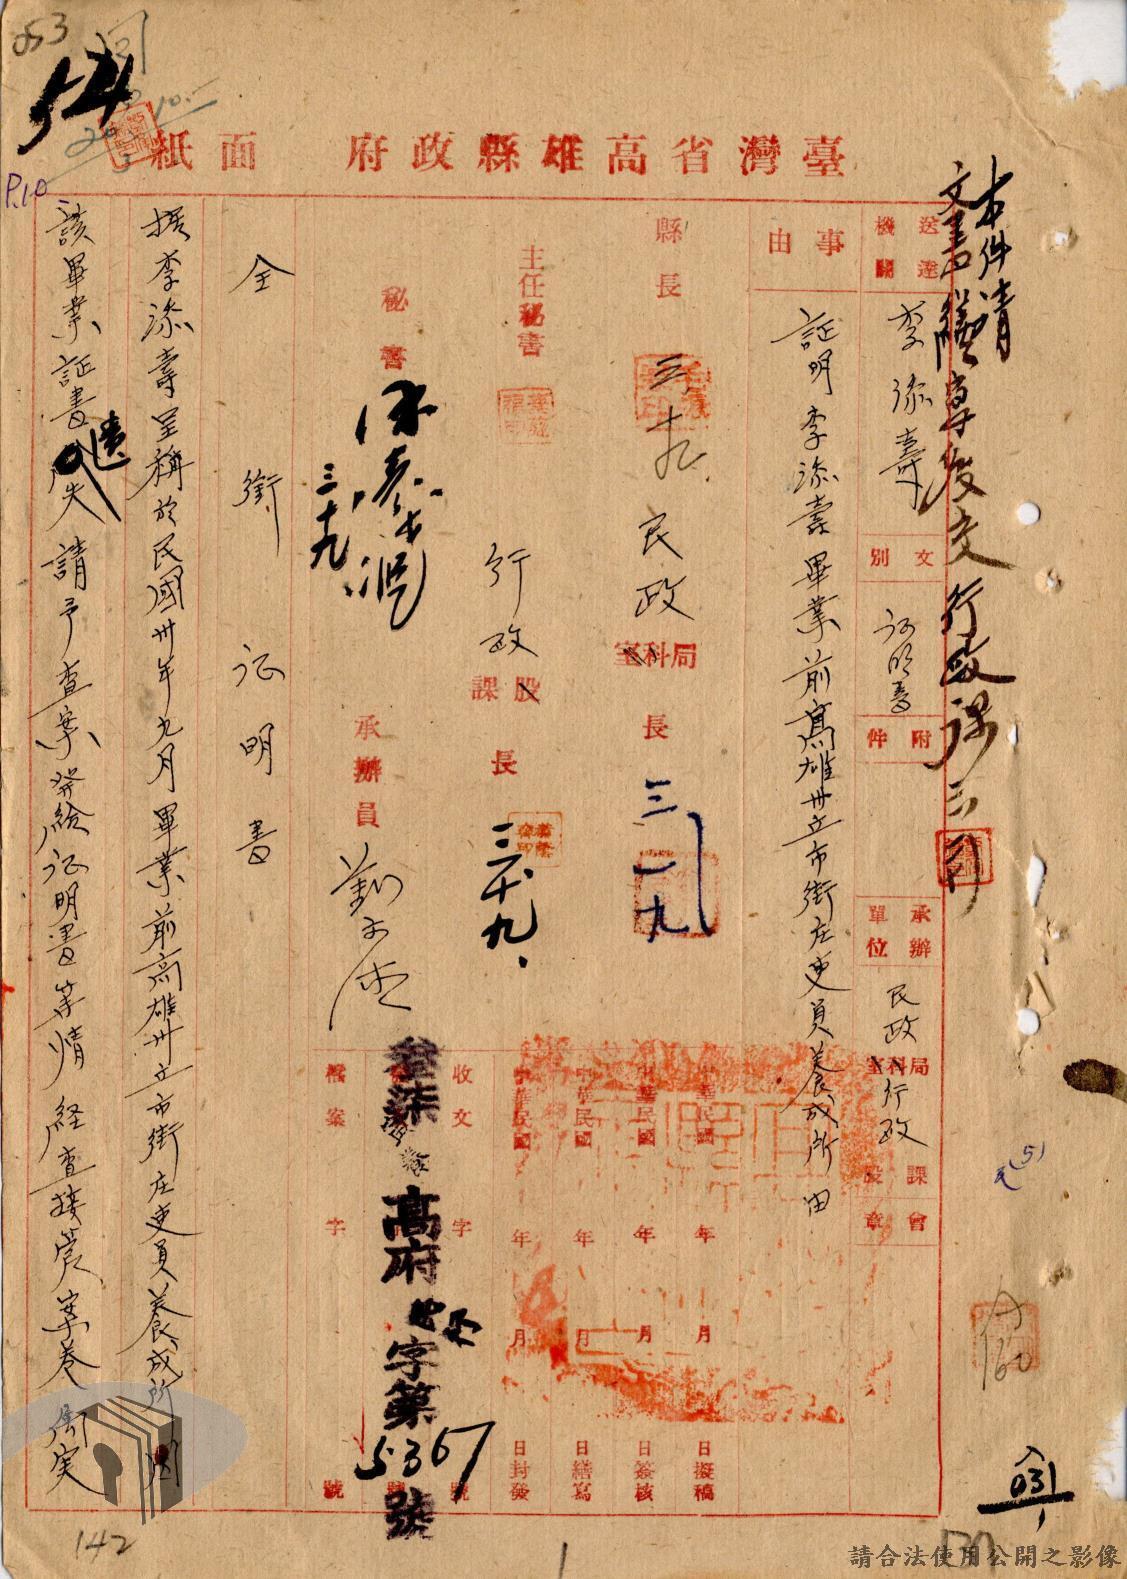 臺灣省高雄縣政府 面紙
本件請
文書繕專後交行政課
送達機關
李添壽
文別
証明書
附件
承辦單位
民政
局科室
行政
課股
會章
事由
証明李添壽畢業前高雄州立市街庄吏員養成所由
縣長
三九
民政
局科室
長
三一九
主任秘書
行政
股課
長
三十九
秘書
三十九
承辦員
中華民國 年 月 日擬稿
中華民國 年 月 日簽核
中華民國 年 月 日繕寫
中華民國 年 月 日封發
收文 字 號
高府 字第 5367 號
檔案 字 號
全銜証明書
据李添壽呈稱於民國卅年九月畢業前高雄州立市街庄吏員養成所因
該畢業証書遺失請予查案發給証明書等情経查接管案卷属実
053
54
P.10
(5)
A
160
031
142
1
137
請合法使用公開之影像